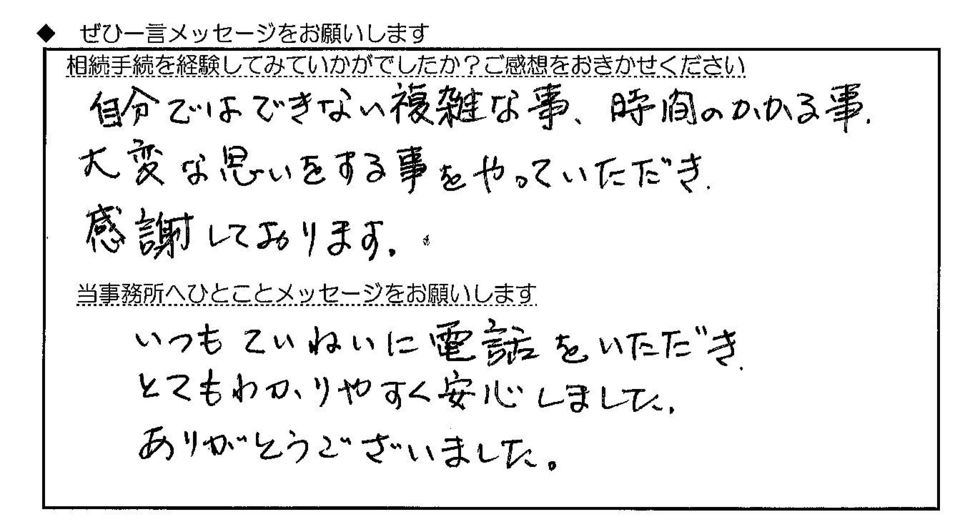 ◆ ぜひ一言メッセージをお願いします
相続手続を経験してみていかがでしたか？ご感想をおきかせください
自分ではできない複雑な事、時間のかかる事、
大変な思いをする事をやっていただき、
感謝しております。
当事務所へひとことメッセージをお願いします
いつもていねいに電話をいただき、
とてもわかりやすく安心しました。
ありがとうございました。